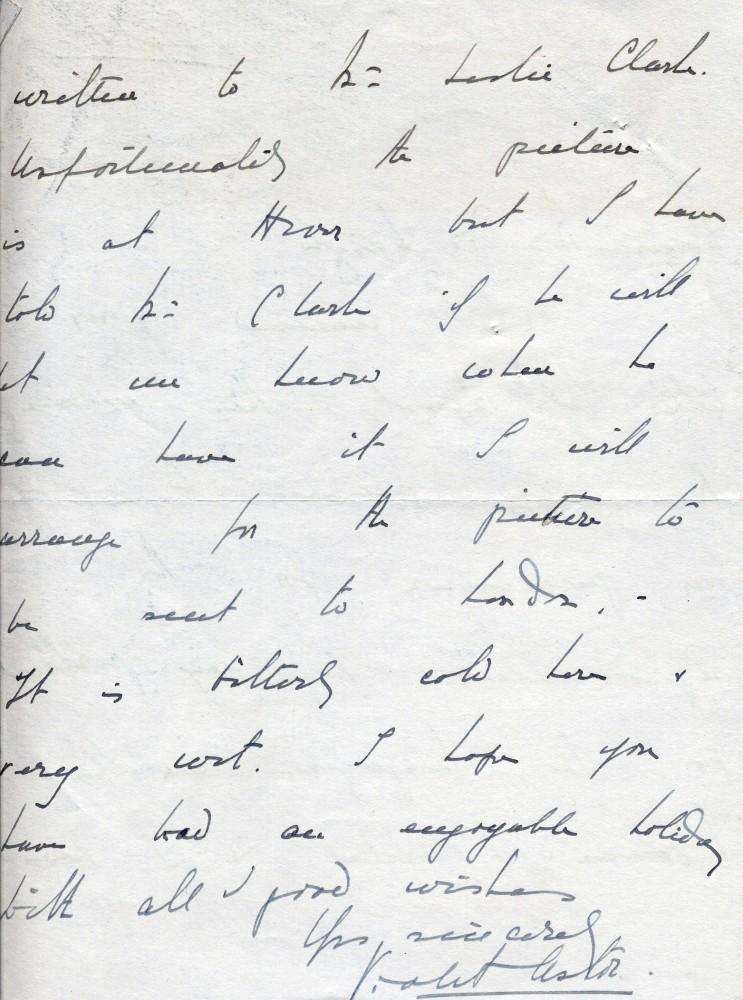 written to Mr= Leslie Clark.
Unfortunately the picture
is at Hever but I have
told Mr= Clark if he will
let me know when he
can have it I will
arrange for the picture to
be sent to London. -
It is bitterly cold here &
very wet. I hope you
have had an enjoyable holiday
With all good wishes
Yrs sincerely
Violet Astor.